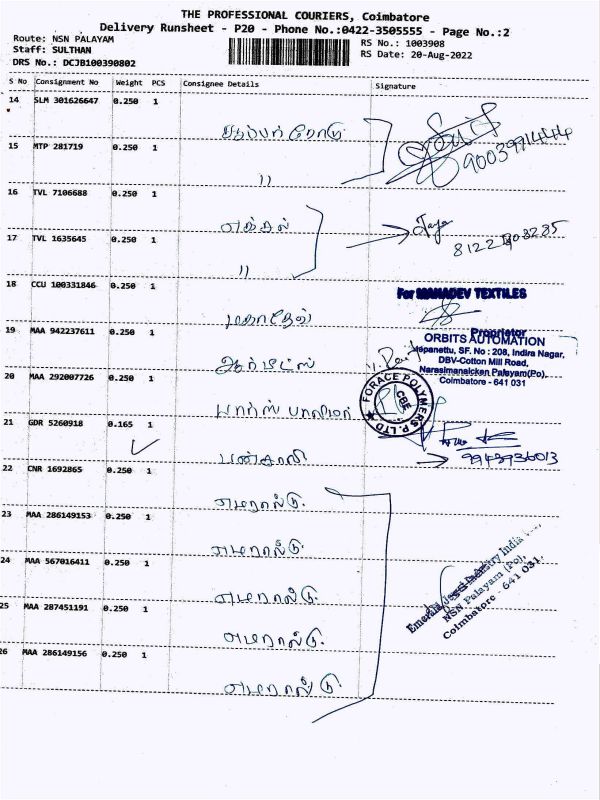 THE PROFESSIONAL COURIERS, Coimbatore
Delivery Runsheet - P20 - Phone No.:0422-3505555 - Page No.:2
Route: NSN PALAYAM
Staff: SULTHAN
DRS No.: DCJB100390802
RS No.: 1003908
RS Date: 20-Aug-2022
S No Consignment No Weight PCS Consignee Details Signature
14 SLM 301626647 0.250 1
15 MTP 281719 0.250 1 "
16 TVL 7106688 0.250 1
17 TVL 1635645 0.250 1 "
18 CCU 100331846 0.250 1 மகாதேவ்
For MAHADEV TEXTILES
Proprietor
19 MAA 942237611 0.250 1 ஆர்பிட்ஸ்
ORBITS AUTOMATION
SF. No : 208, Indira Nagar,
DBV-Cotton Mill Road,
Narasimanaicken Palayam(Po),
Coimbatore - 641 031
20 MAA 292007726 0.250 1
FORACE POLYMERS P. LTD
CBE
21 GDR 5260918 0.165 1
9943936013
22 CNR 1692865 0.250 1 எமரால்டு
23 MAA 286149153 0.250 1 எமரால்டு
24 MAA 567016411 0.250 1 எமரால்டு
25 MAA 287451191 0.250 1 எமரால்டு
26 MAA 286149156 0.250 1 எமரால்டு
Emerald Jewel Industry India
NSN Palayam (Po),
Coimbatore - 641 031.